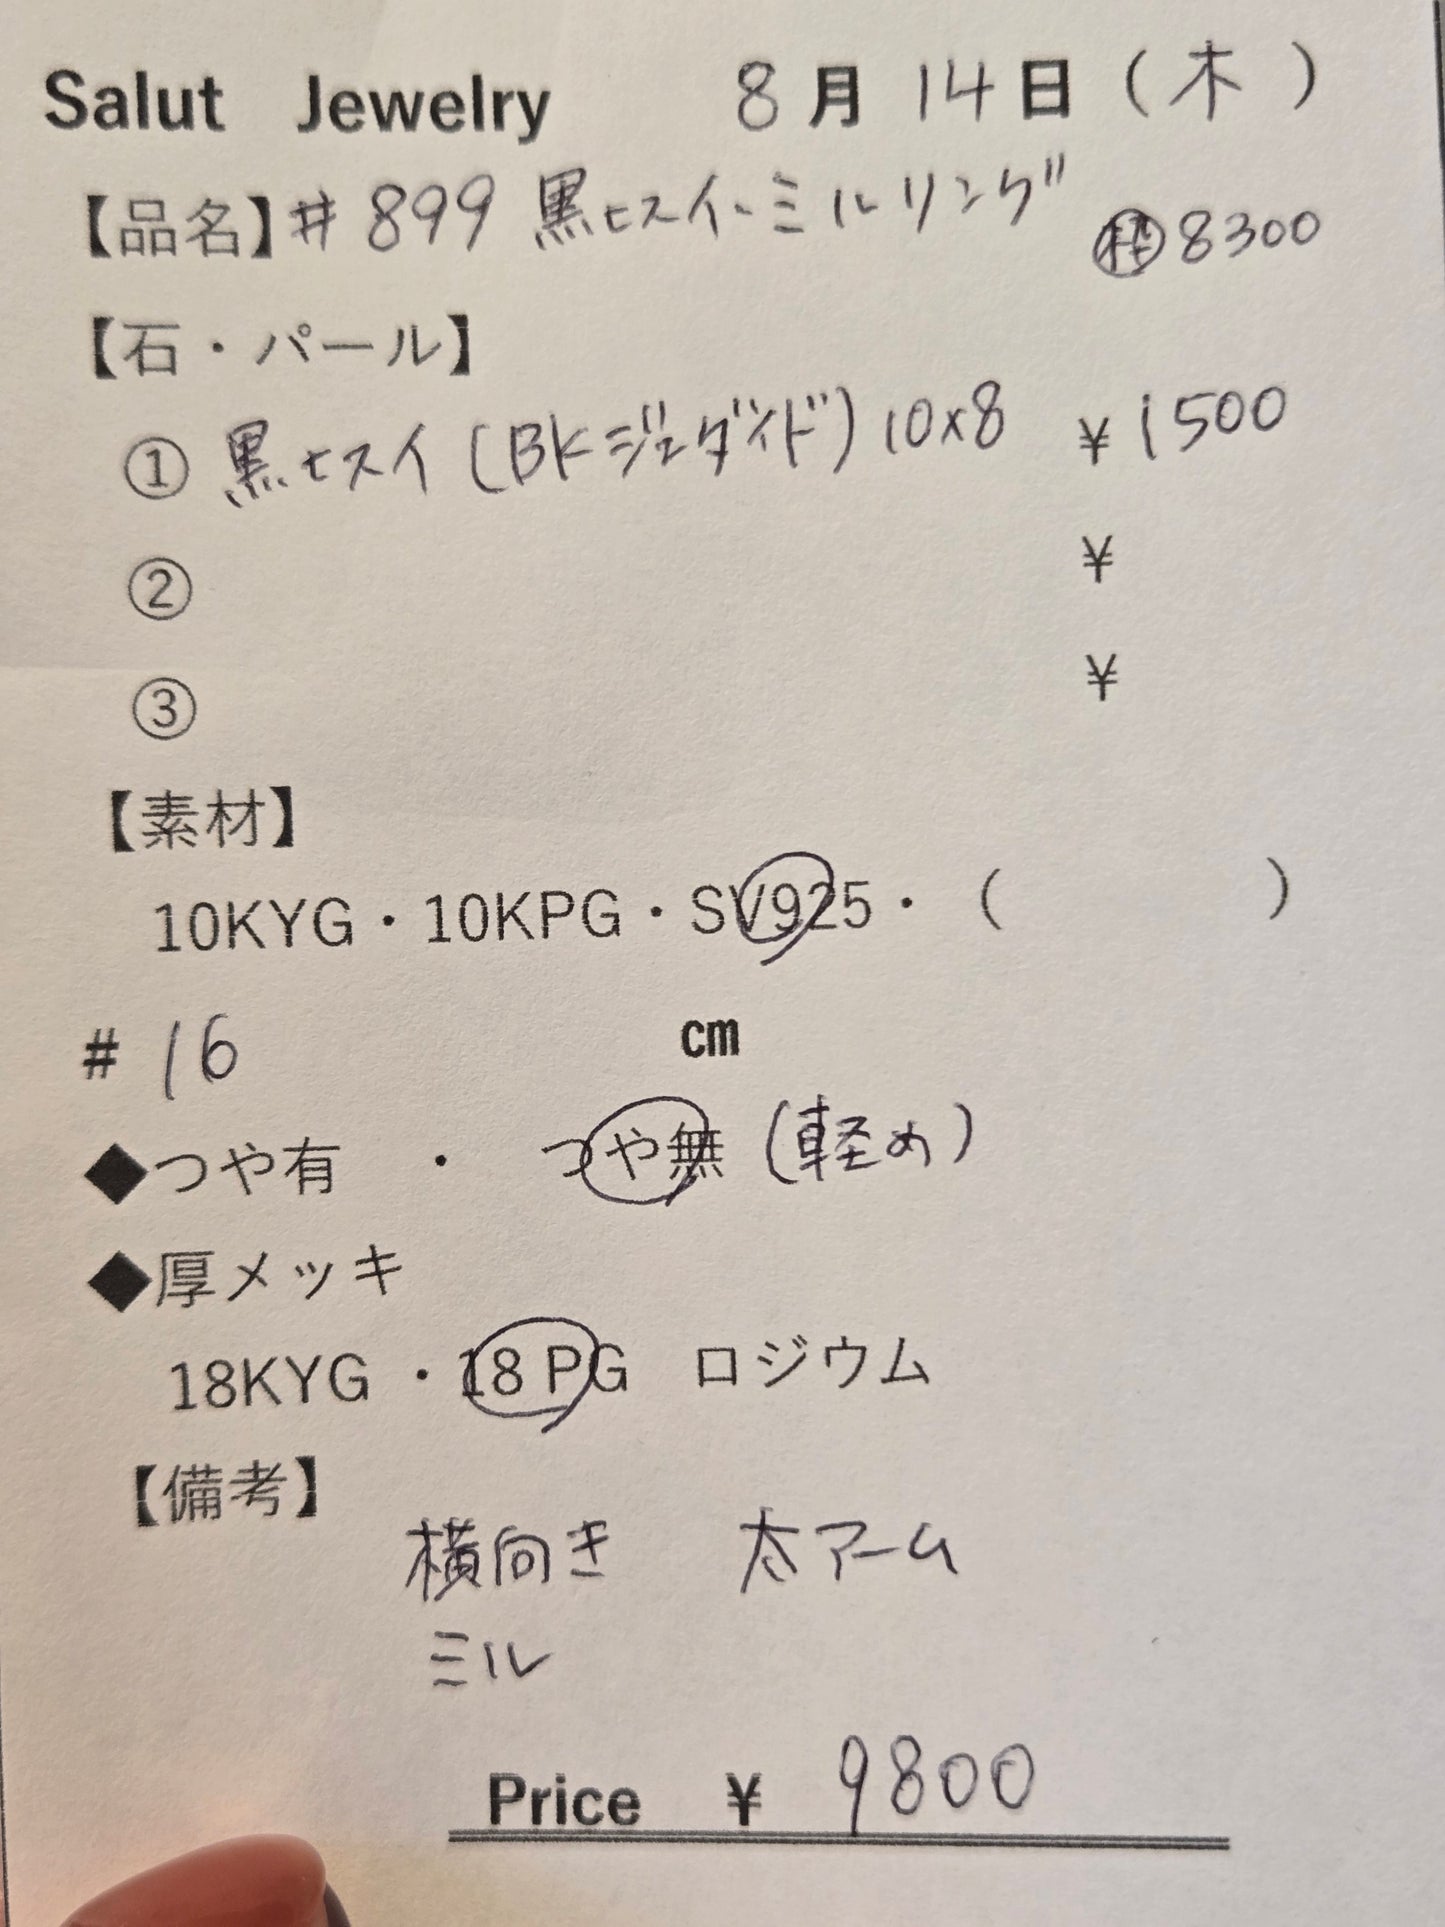 Salut Jewelry 8月14日(木)
【品名】#899 黒ヒスイ・ミルリング
枠 8300
【石・パール】
① 黒ヒスイ(BKジェダイド)10×8 ¥1500
② ¥
③ ¥
【素材】
10KYG・10KPG・SV925・( )
# 16 cm
◆つや有 ・ つや無(軽め)
◆厚メッキ
18KYG ・18 PG ロジウム
【備考】
横向き 太アーム
ミル
Price ¥ 9800